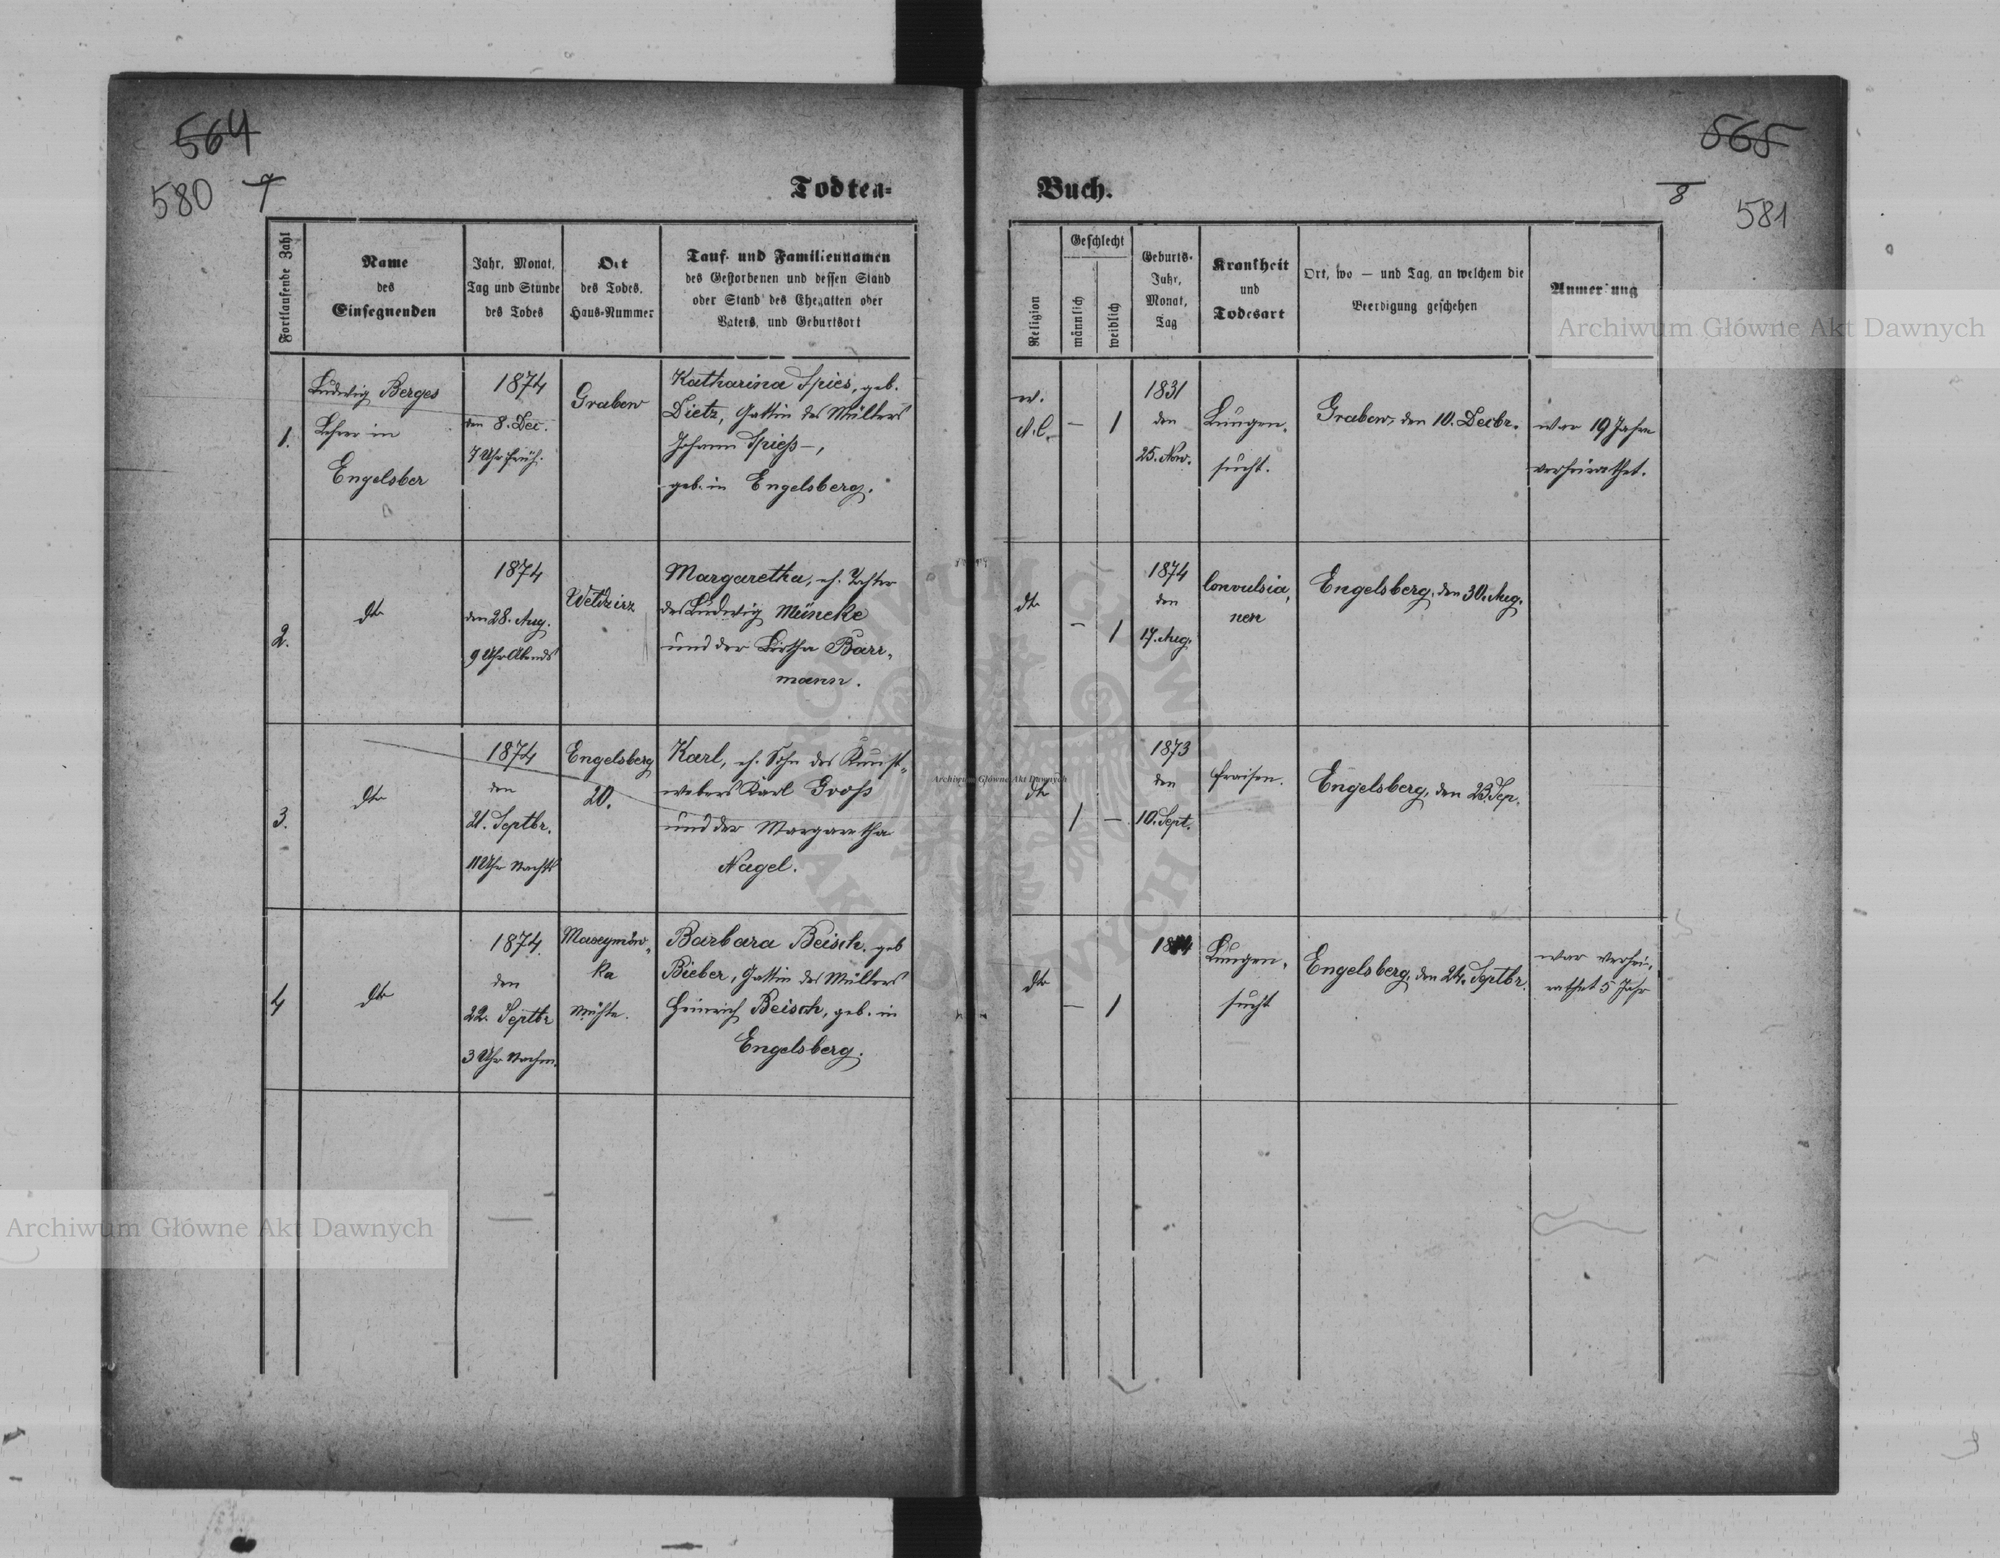 564
580 7
565
8
581
Todten-
Buch.
Fortlaufende Zahl
Name
des
Einsegnenden
Jahr, Monat,
Tag und Stunde
des Todes
Ort
des Todes,
Haus-Nummer
Tauf- und Familiennamen
des Gestorbenen und dessen Stand
oder Stand des Ehegatten oder
Vaters, und Geburtsort
Religion
Geschlecht
männlich
weiblich
Geburts-
Jahr,
Monat,
Tag
Krankheit
und
Todesart
Ort, wo — und Tag, an welchem die
Beerdigung geschehen
Anmerkung
1.
Ludwig Berges
Lehrer in
Engelsber
1874
den 8. Dec.
7 Uhr früh.
Grabow
Katharina Spies, geb.
Dietz, Gattin des Müllers
Johann Spieß –,
geb. in Engelsberg.
– 1
1831
den
25. Nov.
Lungen-
sucht.
Grabow, den 10. Decbr.
war 19 Jahre
verheirathet.
2.
dto
1874
den 28. Aug.
9 Uhr Abends
Weldzirz
Margaretha, eh. Tochter
des Ludwig Müncke
und der Bertha Barr-
mann.
dto
– 1
1874
den
17. Aug.
Convulsio-
nen
Engelsberg, den 30. Aug.
3.
dto
1874
den
21. Septbr.
11 Uhr Nachts
Engelsberg
20.
Karl, eh. Sohn des Kunst-
webers Karl Groß
und der Margaretha
Nagel.
dto
1 –
1873
den
10. Sept.
Fraisen.
Engelsberg, den 23. Sep.
4
dto
1874.
den
22. Septbr
3 Uhr Nachm.
ka
Mühle.
Barbara Beisch, geb
Bieber, Gattin des Müllers
Heinrich Beisch, geb. in
Engelsberg.
dto
– 1
Lungen-
sucht
Engelsberg, den 24. Septbr.
war verhei-
rathet 5 Jahr
Archiwum Główne Akt Dawnych
Archiwum Główne Akt Dawnych
Archiwum Główne Akt Dawnych
ARCHIWUM GŁÓWNE AKT DAWNYCH